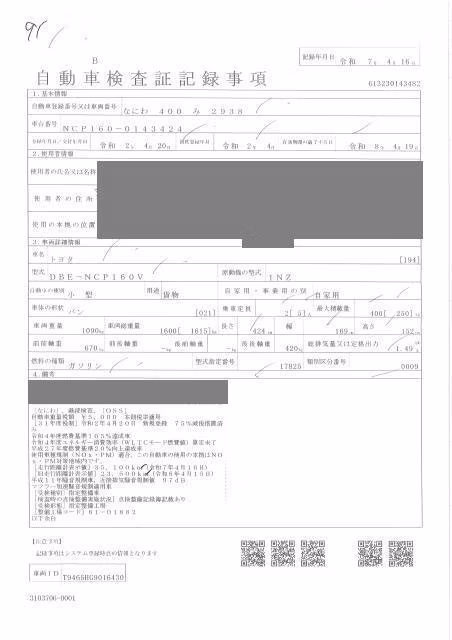 B
記録年月日 令和 7年 4月 16日
自動車検査証記録事項
613230143482
1.基本情報
自動車登録番号又は車両番号 なにわ 400 み 2938
車台番号 NCP160-0143424
令和 2年 4月 20日 初度登録年月 令和 2年 4月 有効期間の満了する日 令和 8年 4月 19日
2.使用者情報
使用者の氏名又は名称
使用者の住所
使用の本拠の位置
3.車両詳細情報
車名 トヨタ [194]
型式 DBE-NCP160V 原動機の型式 1NZ
自動車の種別 小型 用途 貨物 自家用・事業用の別 自家用
車体の形状 バン [021] 乗車定員 2[ 5]人 最大積載量 400[ 250]kg
車両重量 1090kg 車両総重量 1600[ 1615]kg 長さ 424cm 幅 169cm 高さ 152cm
前前軸重 670kg 前後軸重 -kg 後前軸重 -kg 後後軸重 420kg 総排気量又は定格出力 1.49
燃料の種類 ガソリン 型式指定番号 17825 類別区分番号 0009
4.備考
[なにわ],継続検査,[OSS]
自動車重量税額 ¥5,000 本則税率適用
[31年度税制]令和2年4月20日 新規登録 75%減税措置済
み
令和4年度燃費基準105%達成車
令和4年度エネルギー消費効率(WLTCモード燃費値)算定未了
平成27年度燃費基準20%向上達成車
使用車種規制(NOx・PM)適合,この自動車の使用の本拠はNO
x・PM対策地域内です
[走行距離計表示値]35,100km(令和7年4月16日)
[旧走行距離計表示値]23,500km(令和6年4月15日)
平成11年騒音規制車,近接排気騒音規制値 97dB
マフラー加速騒音規制適用車
[受検種別]指定整備車
[検査時の点検整備実施状況]点検整備記録簿記載あり
[受検形態]指定整備工場
[整備工場コード]61-01882
以下余白
[注意事項]
記録事項はシステム登録時点の情報となります
車両ID T9465HG9016430
3103706-0001